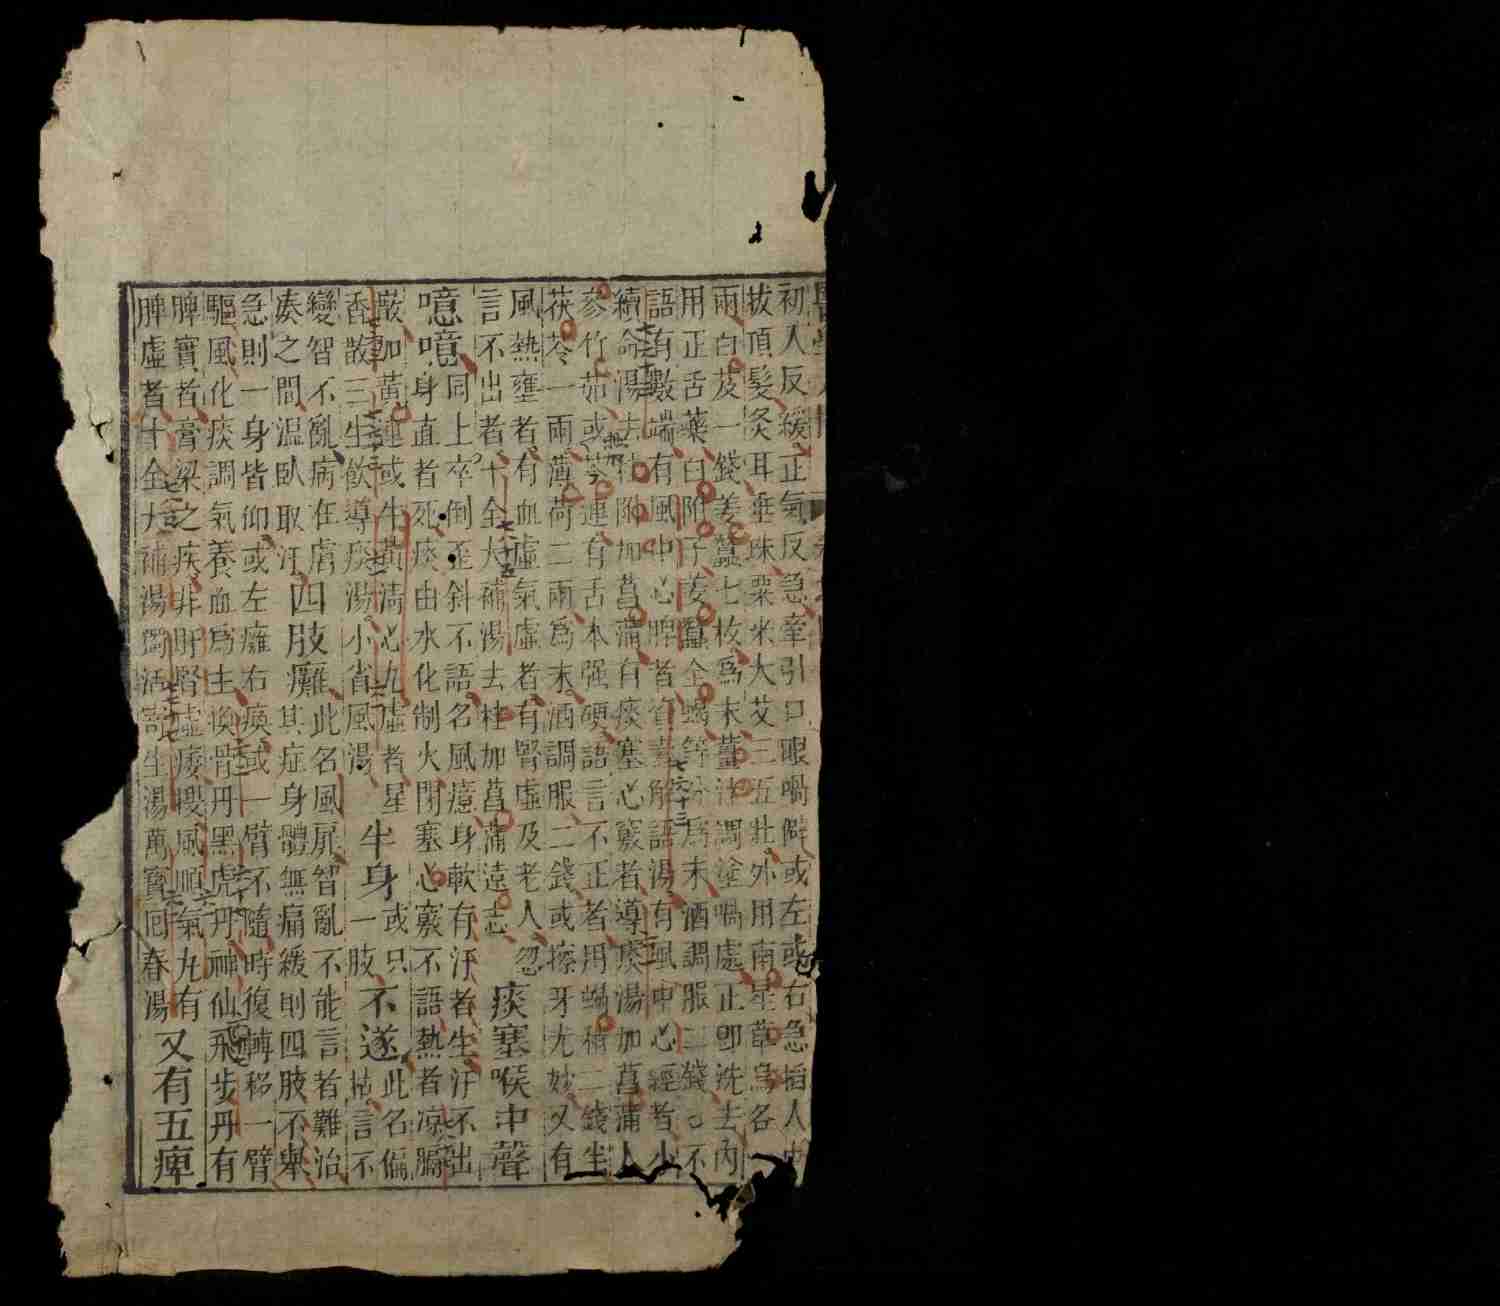 初人反緩正氣反急牽引口眼喎僻或左或右急掐人中
拔頂髮灸耳垂珠粟米大艾三五壯外用南星草烏各一
兩白芨一錢姜蠶七枚爲末薑汁調塗喎處正即洗去內
用正舌藥白附子姜蠶全蝎等分爲末酒調服二錢○不
語有數端有風中心脾者資壽解語湯有風中心經者少
續命湯去桂附加菖蒲有痰塞心竅者導痰湯加菖蒲人
參竹茹或芩連有舌本强硬語言不正者用蝎稍二錢生
茯苓一兩薄荷二兩爲末酒調服二錢或擦牙尤妙又有
風熱壅者有血虛氣虛者有腎虛及老人忽
言不出者十全大補湯去桂加菖蒲遠志
痰塞喉中聲
噫噫
同上卒倒歪斜不語名風癔身軟有汗者生汗不出
身直者死痰由水化制火閉塞心竅不語熱者凉膈
散加黃連或牛黃清心丸虛者星
香散三生飲導痰湯小省風湯
半身
或只
一肢
不遂
此名偏
枯言不
變智不亂病在膚
腠之間温臥取汗
四肢癱
此名風痱智亂不能言者難治
其症身體無痛緩則四肢不舉
急則一身皆仰或左癱右瘓或一臂不隨時復轉移一臂
驅風化痰調氣養血爲主換骨丹黑虎丹神仙飛步丹有
脾實者膏梁之疾非肝腎虛痿搜風順氣丸有
脾虛者十全大補湯獨活寄生湯萬寶回春湯
又有五痺